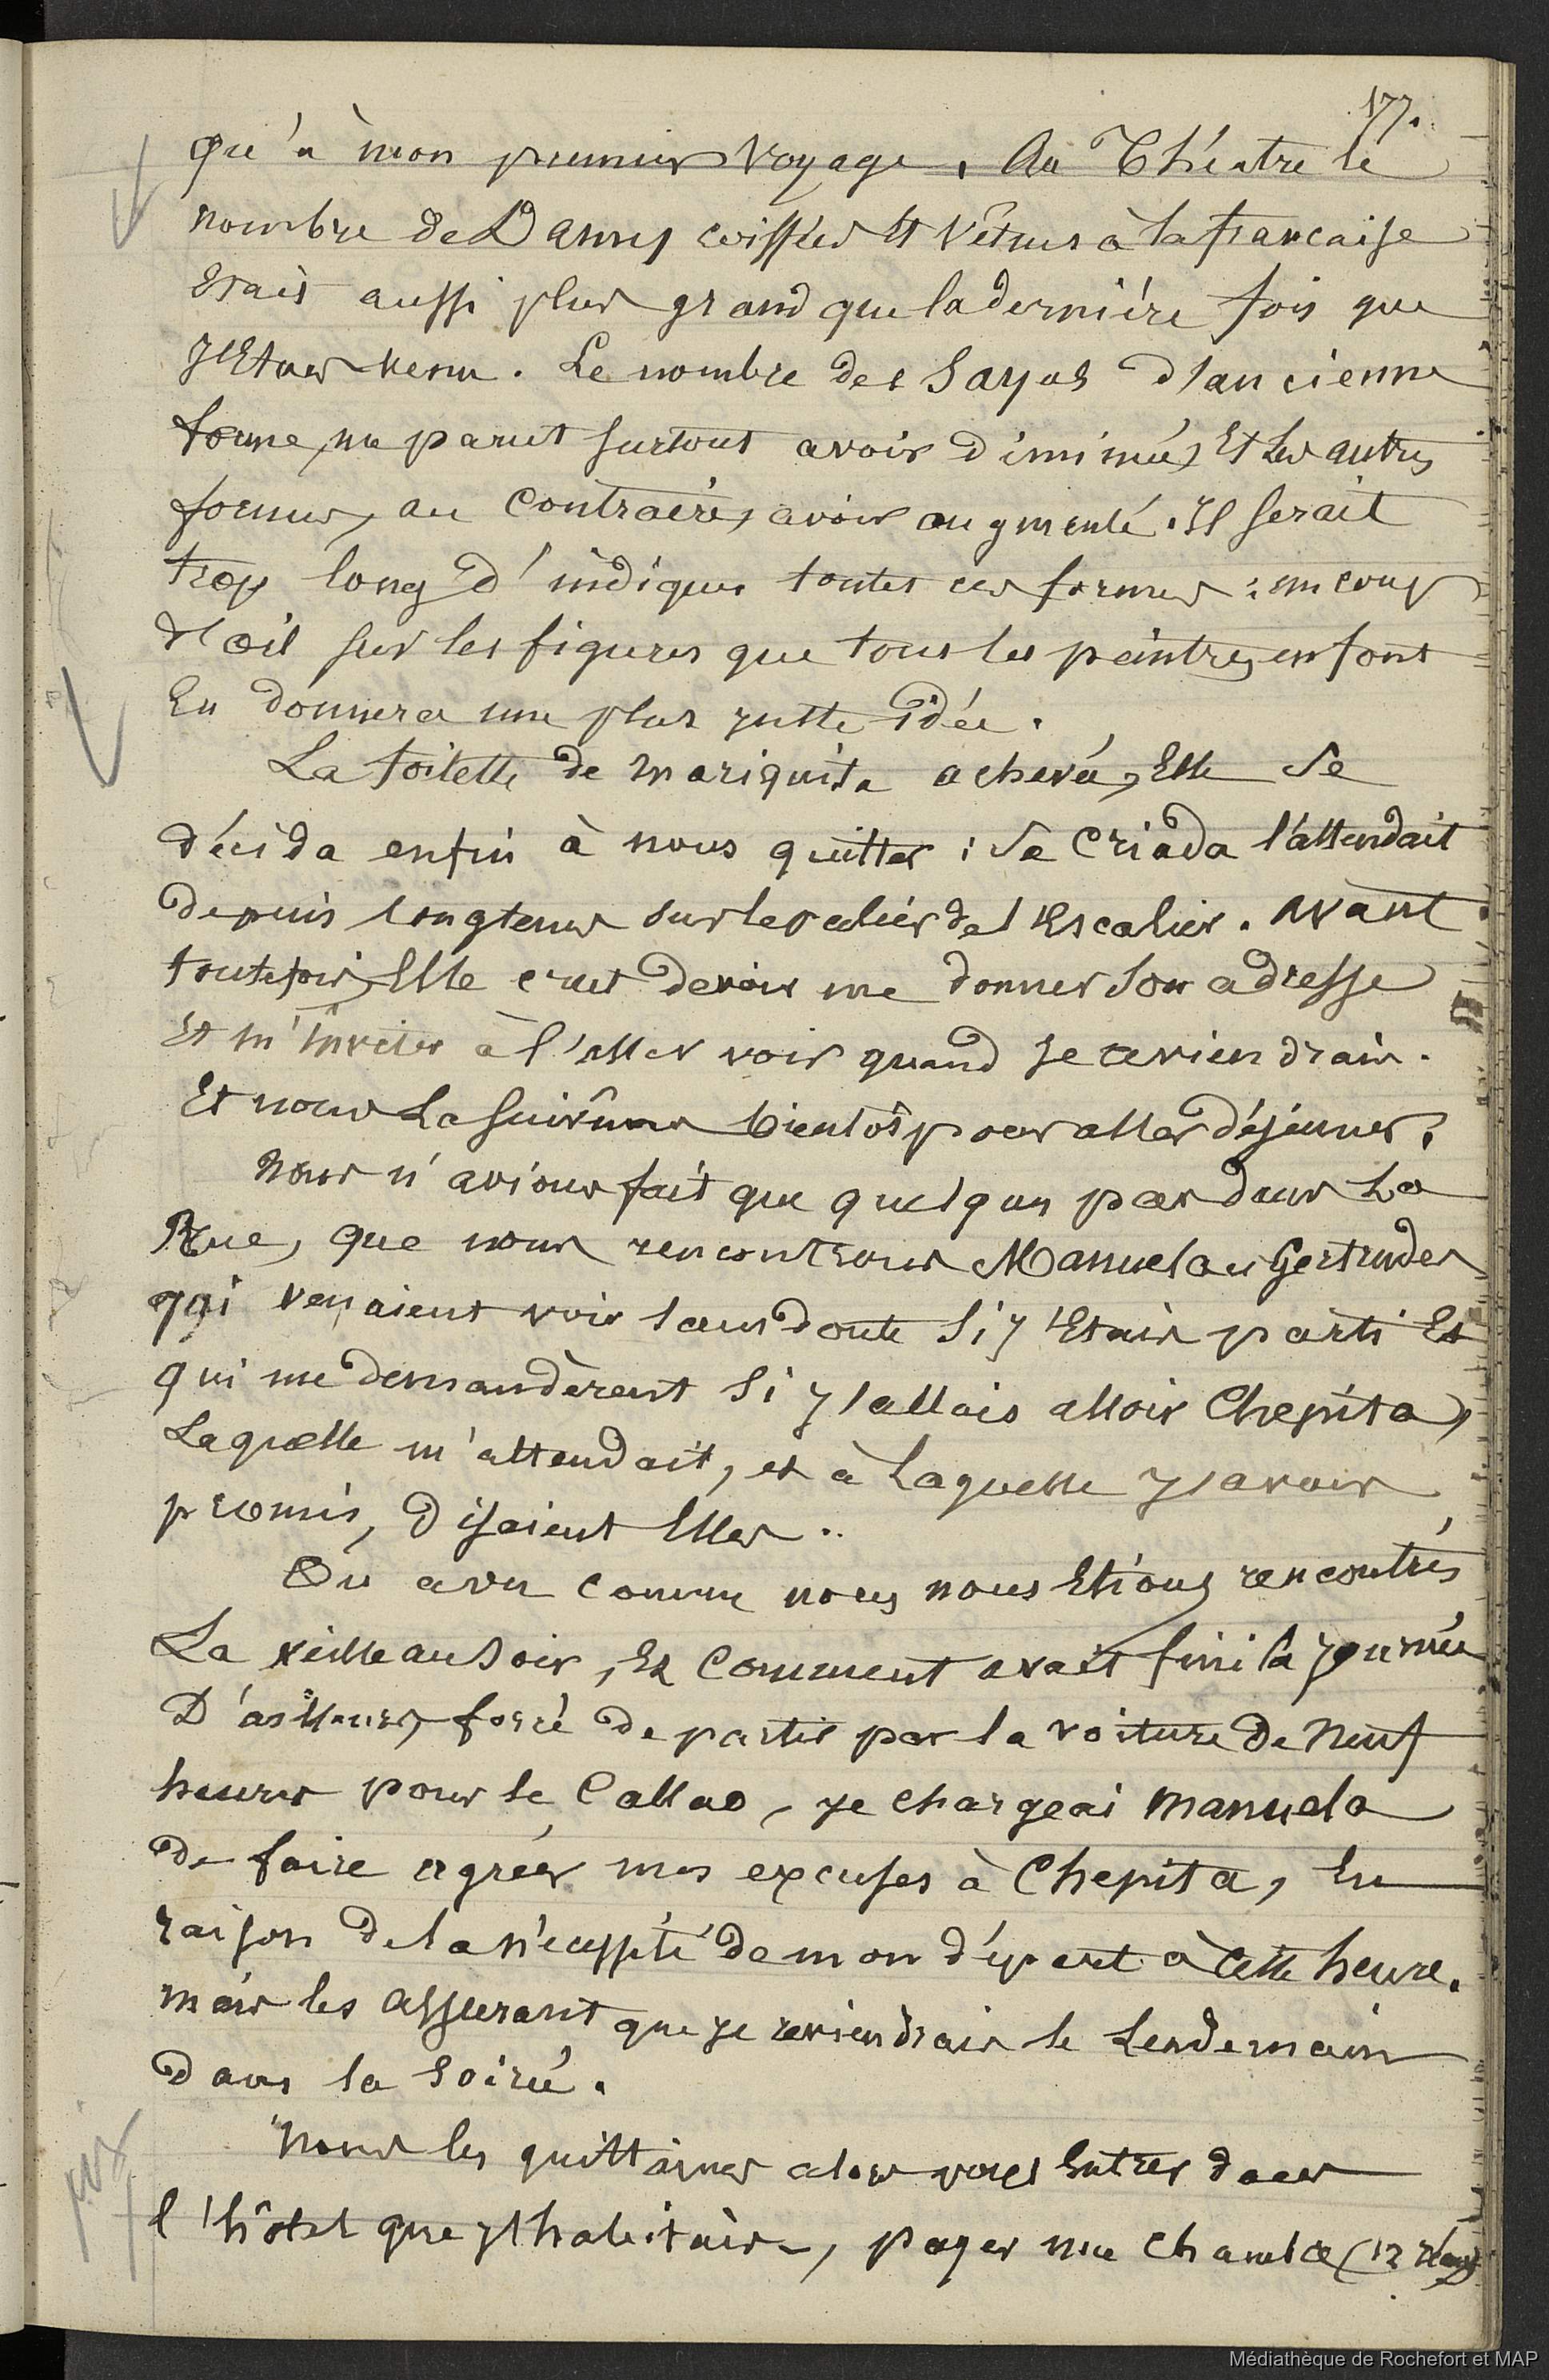 177.
qu'à mon premier voyage. Au Théatre le
nombre de Dames coiffées et vêtues à la francaise
Etait aussi plus grand que la dernière fois que
j'Etais venu. Le nombre des Sayas d'ancienne
forme, me parut surtout avoir diminué, Et les autres
formes, au contraire, avoir augmenté. Il serait
trop long d'indiquer toutes ces formes : un coup
d'œil sur les figures que tous les peintres en font
En donnera une plus juste idée.
La toilette de Mariquita achevée, Elle se
décida enfin à nous quitter : sa Criada l'attendait
depuis longtems sur le palier de l'Escalier. Avant
toutefois, Elle crut devoir me donner son adresse
Et m'inviter à l'aller voir quand je reviendrais.
Et nous la suivîmes bientôt pour aller déjeuner.
Nous n'avions fait que quelques pas dans la
Rue, que nous rencontrons Manuela et Gertrudes
qui venaient voir sans doute si j'Etais parti Et
qui me demandèrent si j'allais voir Chepita,
Laquelle m'attendait, et à laquelle j'avais
promis, disaient Elles..
On a vu comme nous nous Etions rencontrés
La veille au soir, Et comment avait fini la journée
D'ailleurs, forcé de partir par la voiture de neuf
heures pour le Callao, je chargeai Manuela
de faire agréer mes excuses à Chepita, En
raison de la nécessité de mon départ à cette heure.
mais les assurant que je reviendrais le lendemain
dans la soirée.
Nous les quittâmes alors pour Entrer dans
l'hôtel que j'habitais, payer ma chambre (12
Médiathèque de Rochefort et MAP